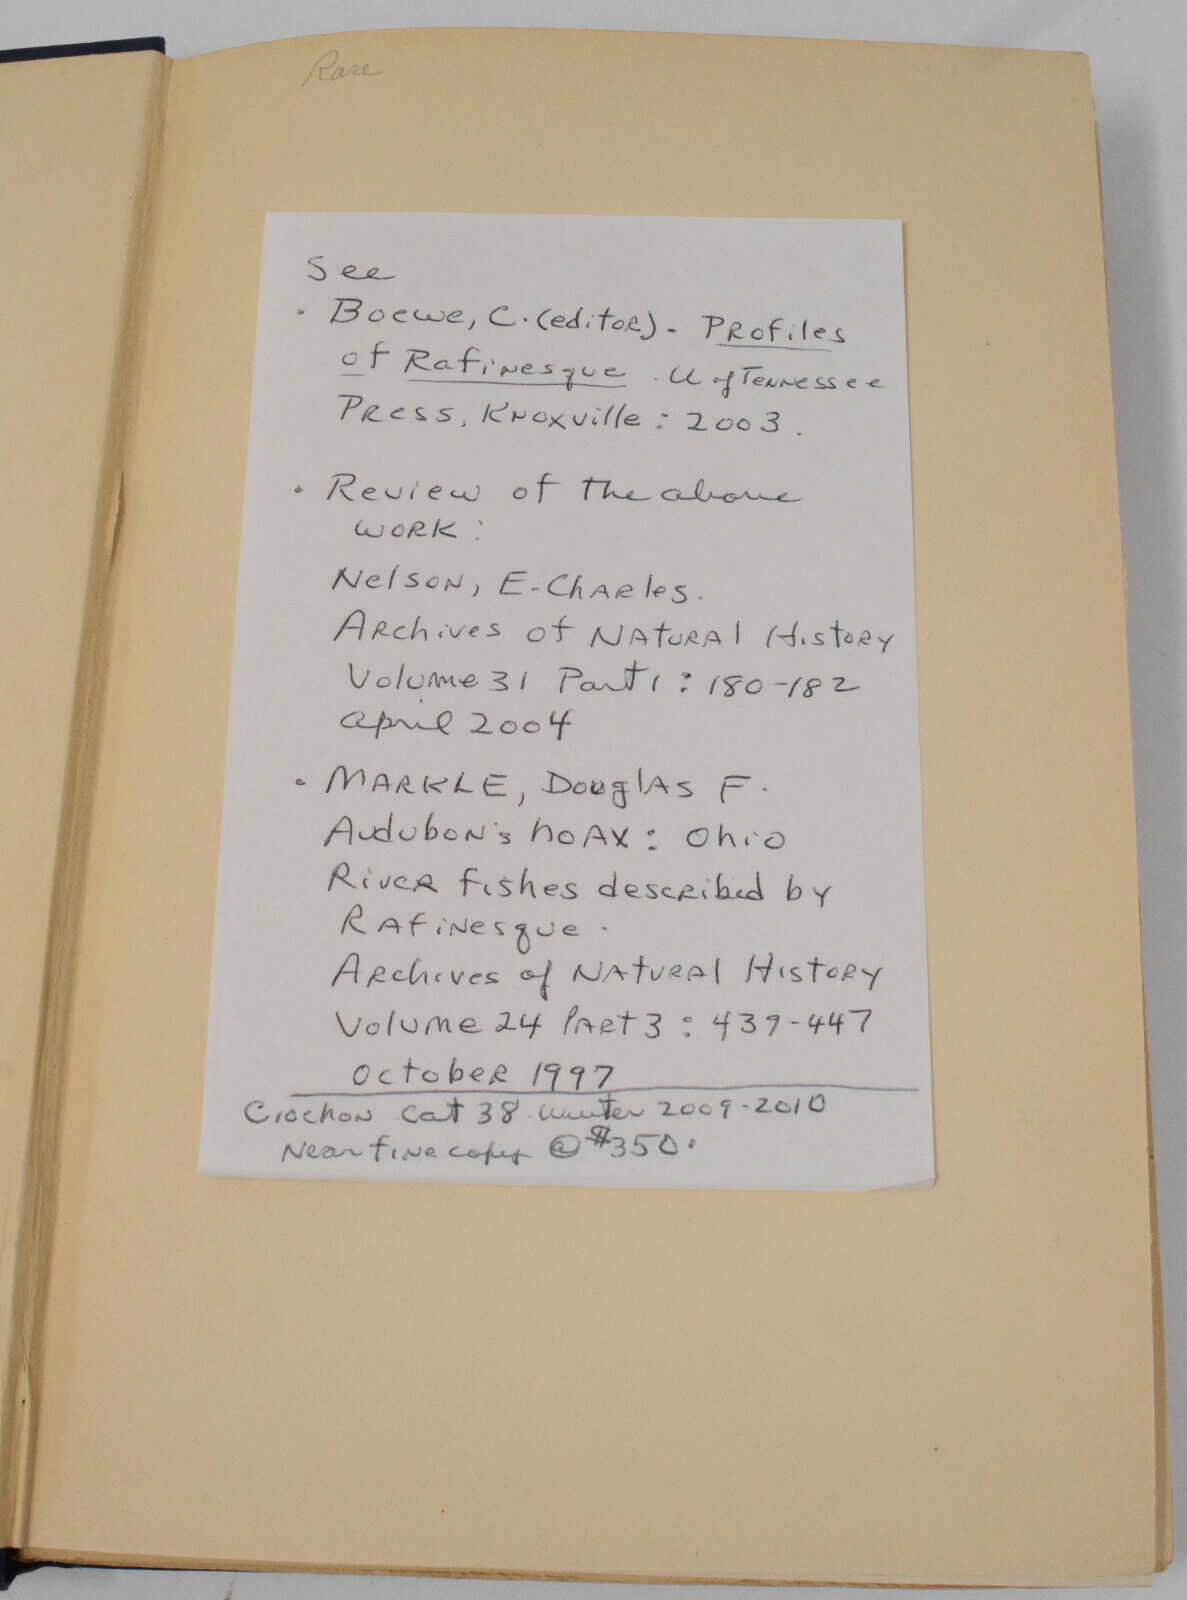 Rare
See
• Boewe, C. (editor) - Profiles
of Rafinesque. U of Tennessee
Press, Knoxville: 2003.
• Review of the above
work:
Nelson, E-Charles.
Archives of Natural History
Volume 31 Part 1: 180-182
April 2004
• MARKLE, Douglas F.
Audubon's hoax: Ohio
River fishes described by
Rafinesque.
Archives of Natural History
Volume 24 Part 3: 439-447
October 1997
Ciochon Cat 38 Winter 2009-2010
Near fine copy @ $350.